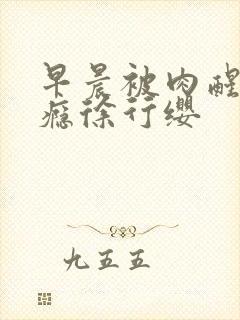 早晨被肉醒
瘾徐行缨
九五五